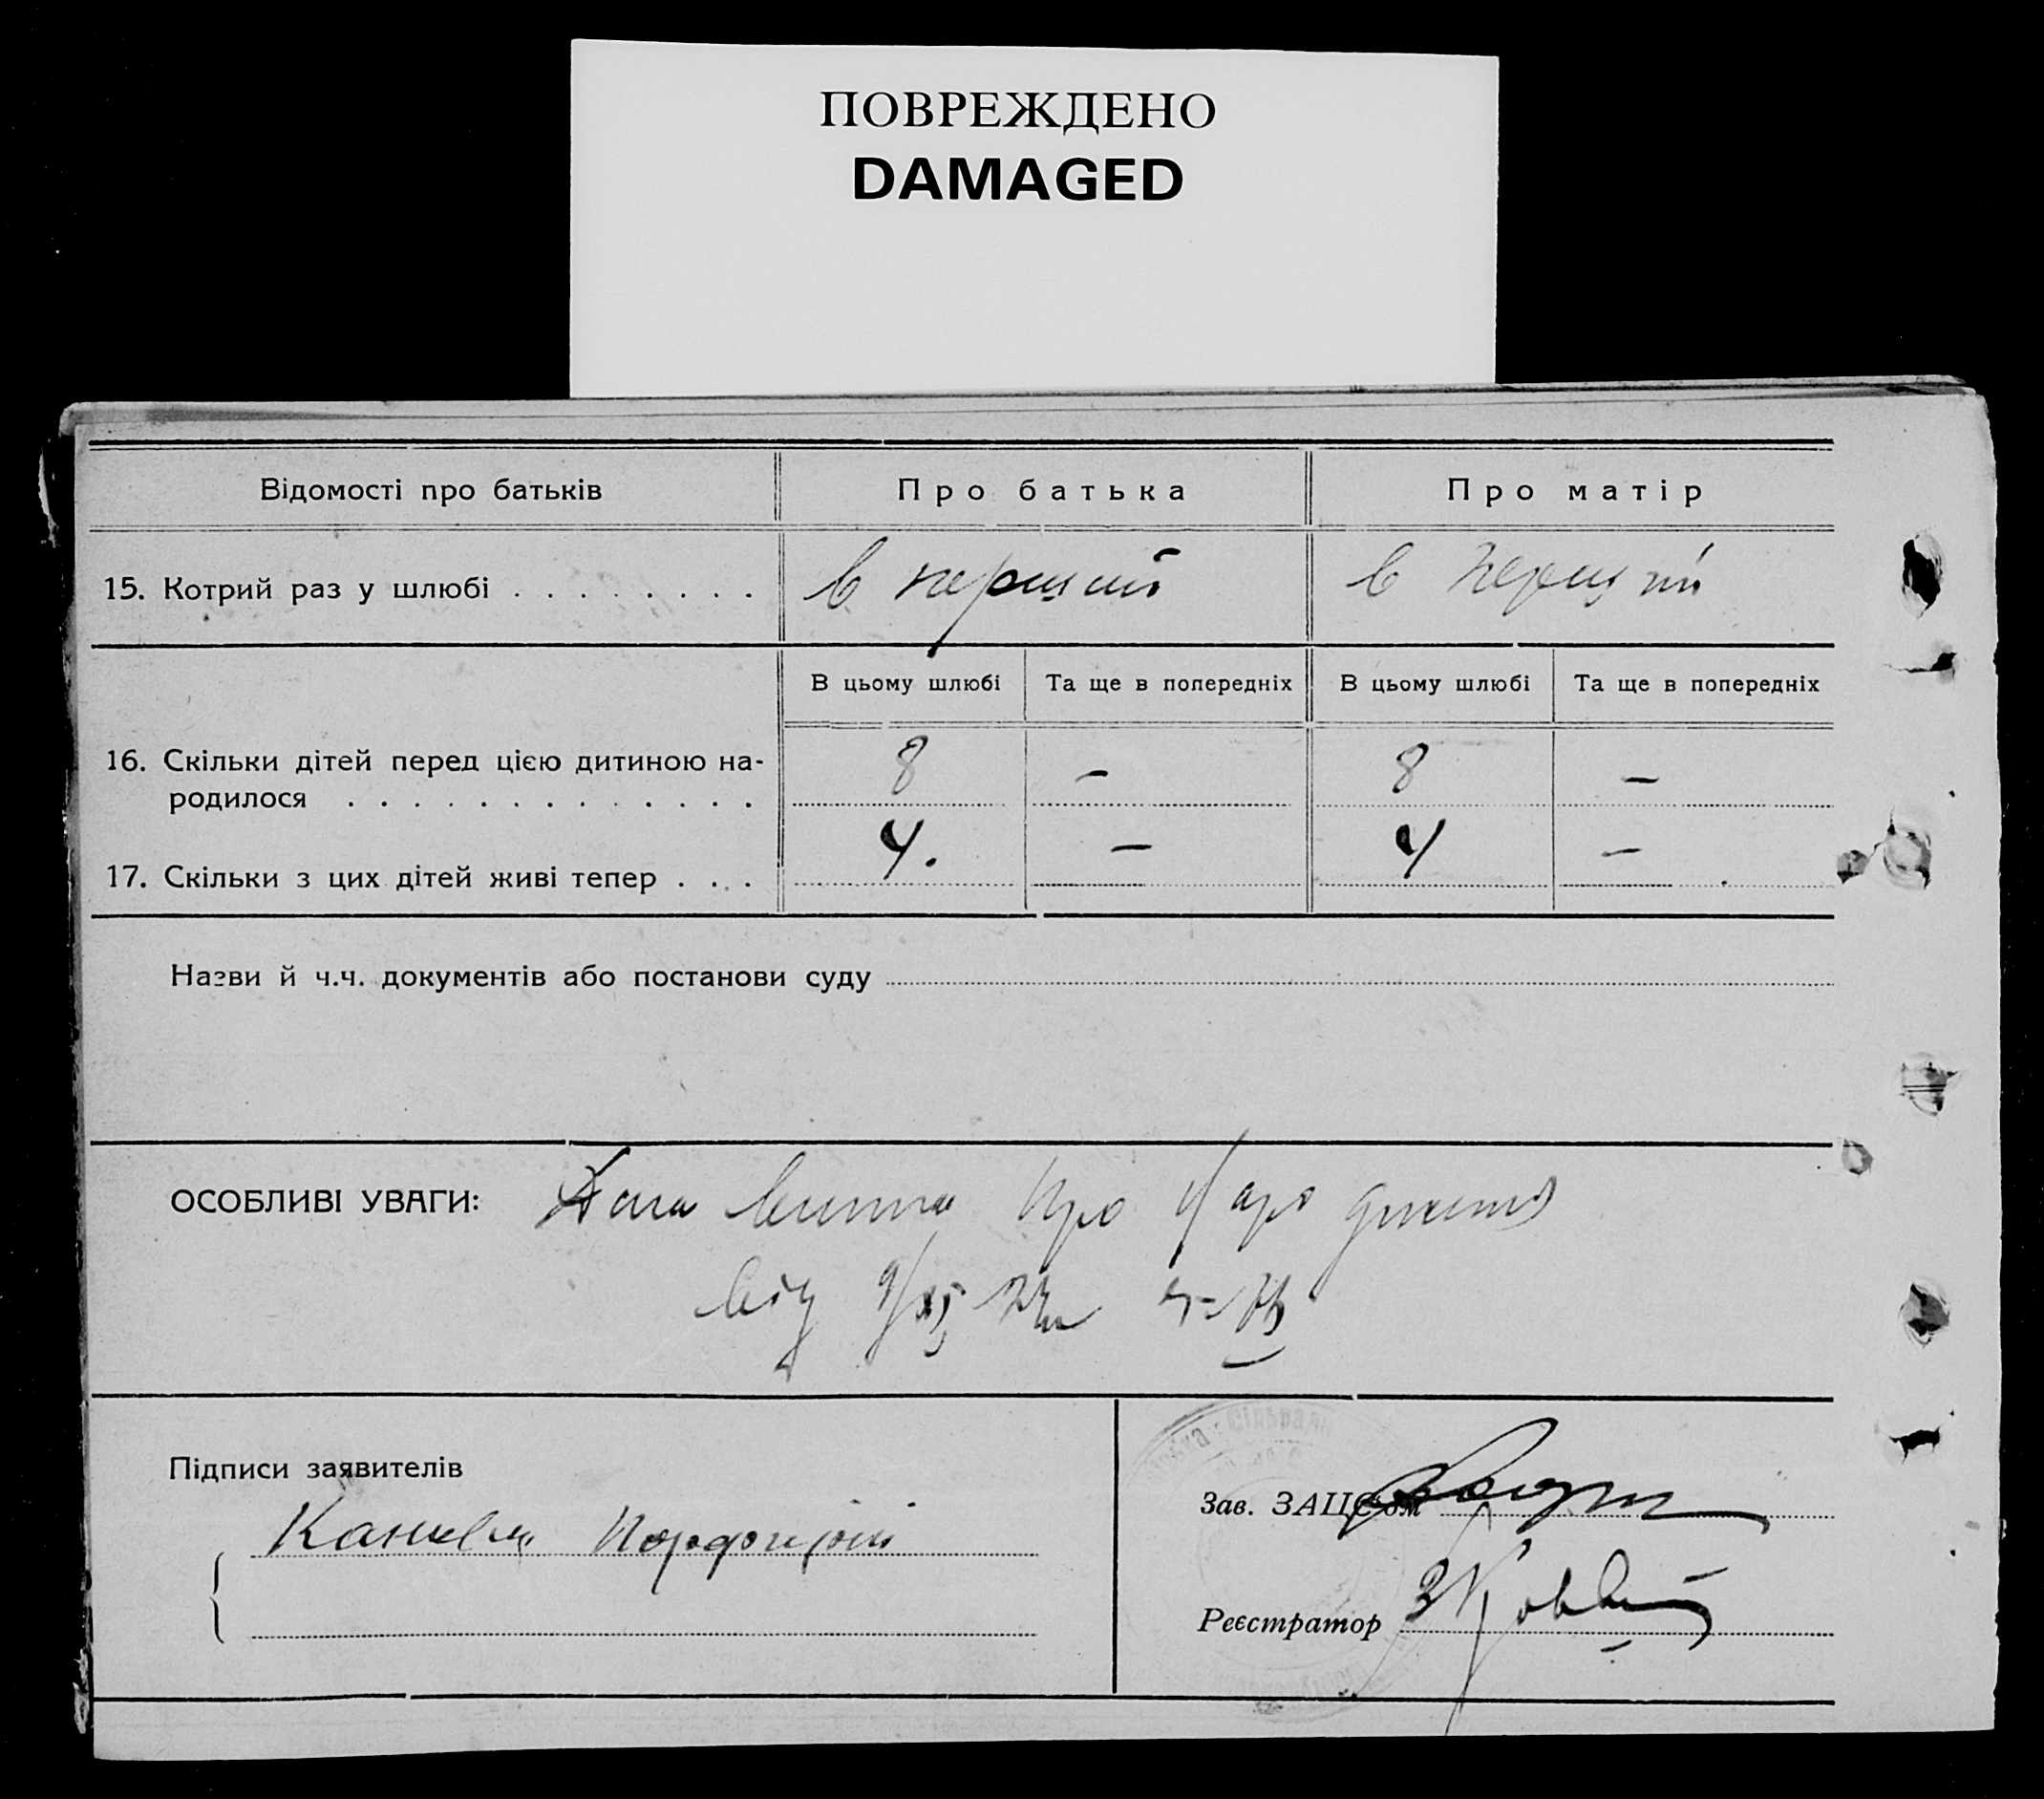 ПОВРЕЖДЕНО
DAMAGED
Відомості про батьків
Про батька
Про матір
15. Котрий раз у шлюбі . . . . . . . .
в перший
в перший
В цьому шлюбі
Та ще в попередніх
В цьому шлюбі
Та ще в попередніх
16. Скільки дітей перед цією дитиною на-
родилося . . . . . . . . . . . . .
8
–
8
–
17. Скільки з цих дітей живі тепер . . .
4.
–
4
–
Назви й ч.ч. документів або постанови суду
ОСОБЛИВІ УВАГИ:
про
від
Підписи заявителів
Зав. ЗАЦСом
Реєстратор